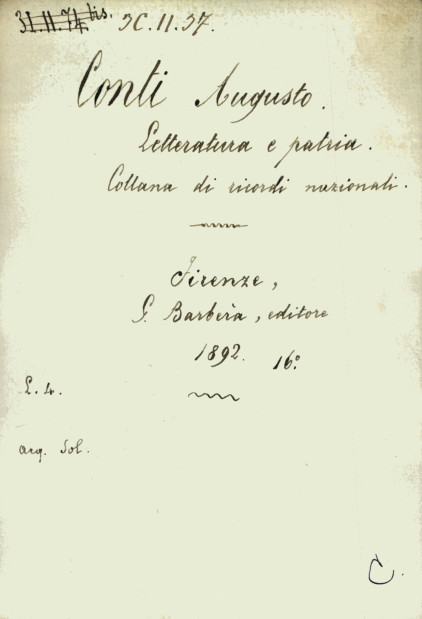 31.II.74.bis. 3C.II.37.
Conti Augusto.
Letteratura e patria.
Collana di ricordi nazionali.
Firenze,
G. Barbèra, editore
1892. 16º
L. 4.
acq. Sol.
C.